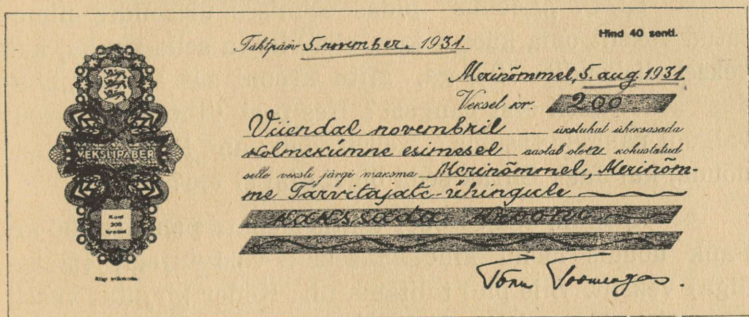 Hind 40 senti.
Tähtpäev 5. november. 1931.
Merinõmmel, 5. aug. 1931
Veksel kr. 200
Viiendal novembril ükstuhat üheksasada
kolmekümne esimesel aastal olen kohustatud
selle veksli järgi maksma Merinõmmel, Merinõm-
me Tarvitajate-ühingule
kakssada krooni
VEKSLIPABER
Kuni
200
kroonini
Tõnu Toomengas.